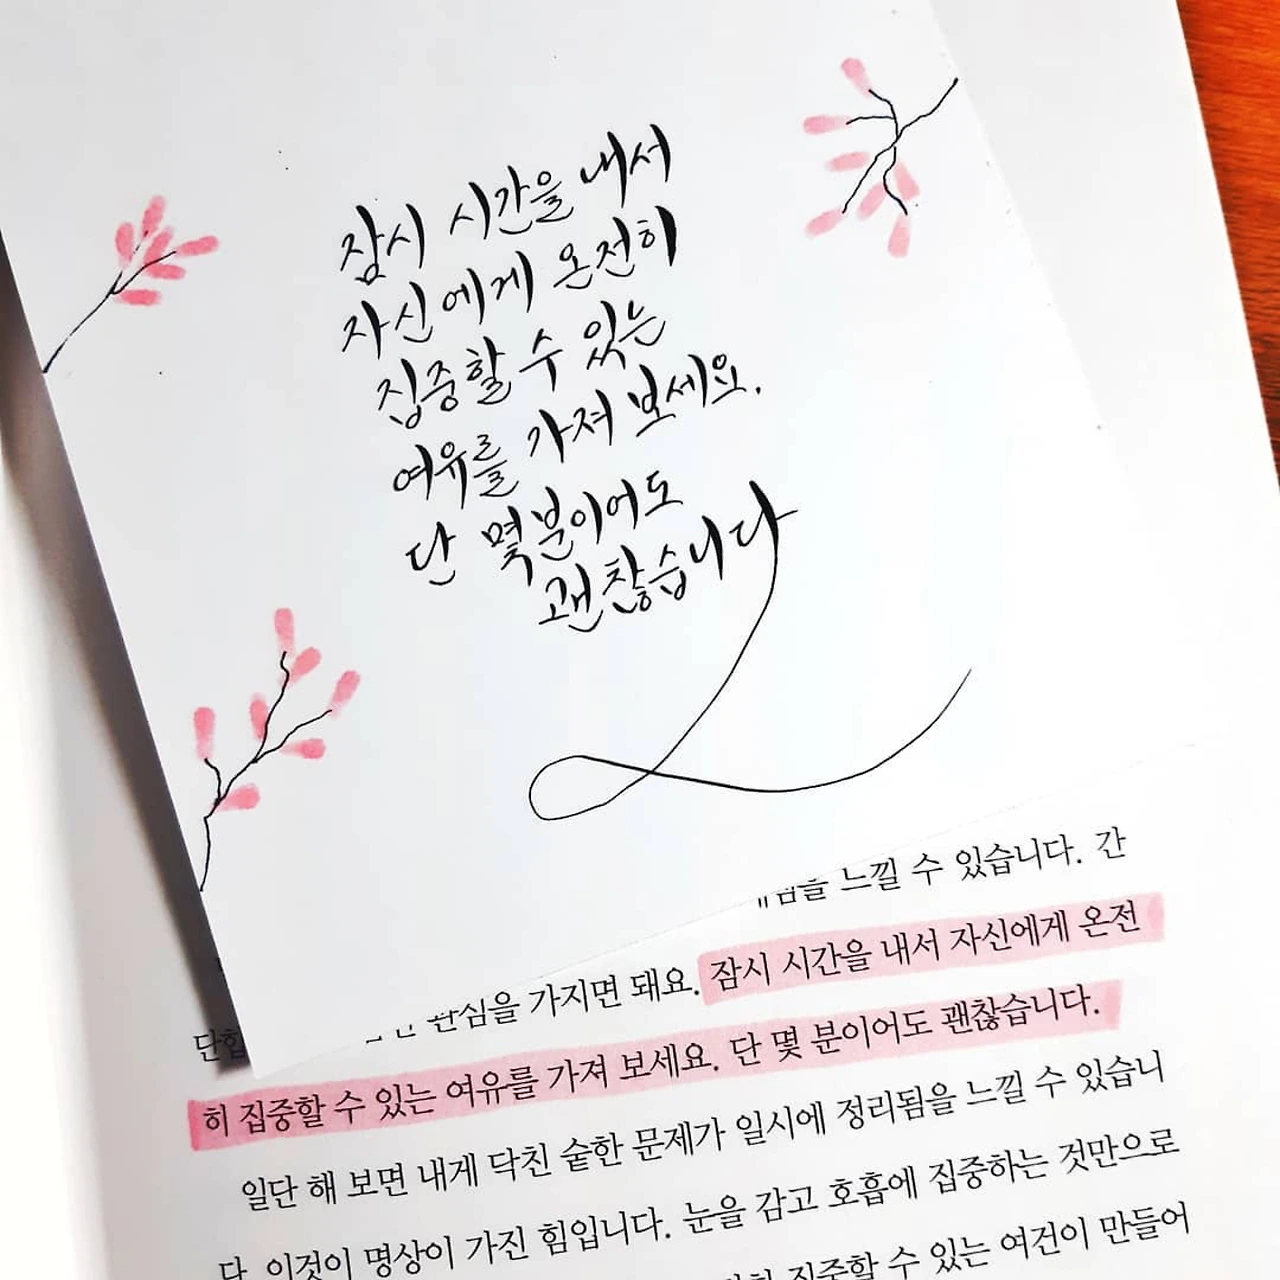 잠시 시간을 내서
자신에게 온전히
집중할 수 있는
여유를 가져 보세요.
단 몇분이어도
괜찮습니다
느낄 수 있습니다. 간
가지면 돼요. 잠시 시간을 내서 자신에게 온전
히 집중할 수 있는 여유를 가져 보세요. 단 몇 분이어도 괜찮습니다.
일단 해 보면 내게 닥친 숱한 문제가 일시에 정리됨을 느낄 수 있습니
다. 이것이 명상이 가진 힘입니다. 눈을 감고 호흡에 집중하는 것만으로
집중할 수 있는 여건이 만들어